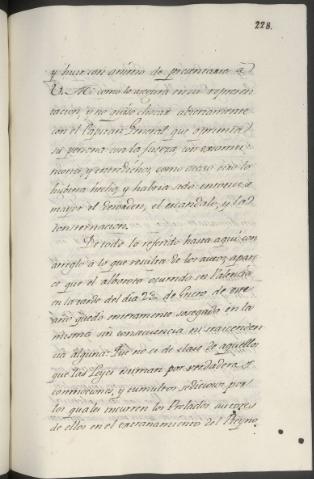 228.
y huir con animo de presentarse à
V. M. como lo asegura en su represen
tacion, y no quiso chocar abiertamente
con el Capitan General que oprimia
su persona con la fuerza, con
y entredichos, como acaso otro lo
hubiera hecho, y habria sido entonces
mayor el desorden, el escandalo, y la
consternacion.
De todo lo referido hasta aqui con
arreglo à lo que resulta de los autos, apare
ce que el alboroto ocurrido en Valencia
en la tarde del dia 23 de Enero de este
año quedó enteramente sosegado en la
misma sin consecuencia, ni trascenden
cia alguna: Fue no es de clase de aquellos
que las Leyes llaman por verdadera
conmociones, y tumultos sediciosos, por
los quales incurren los Prelados autores
de ellos en el extrañamiento del Reyno,